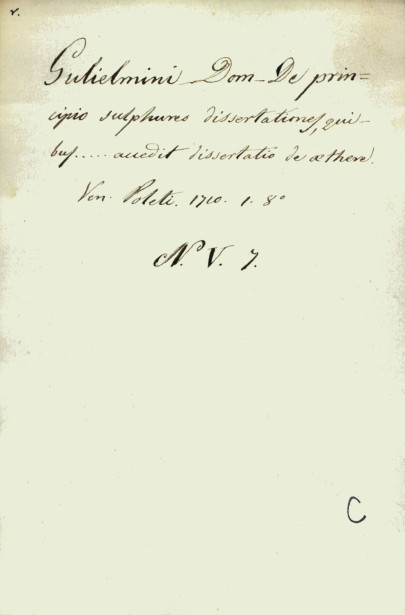 v.
Gulielmini Dom- De prin=
cipio sulphureo dissertationes, qui-
bus..... accedit dissertatio de æthere.
Ven. Poleti. 1710. 1. 8°
N. V. 7.
C